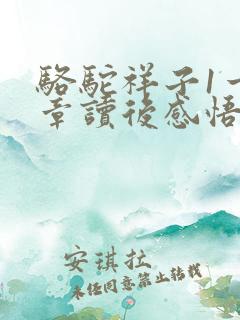 駱駝祥子1一
章讀後感悟
安琪拉
未任同意禁止转载